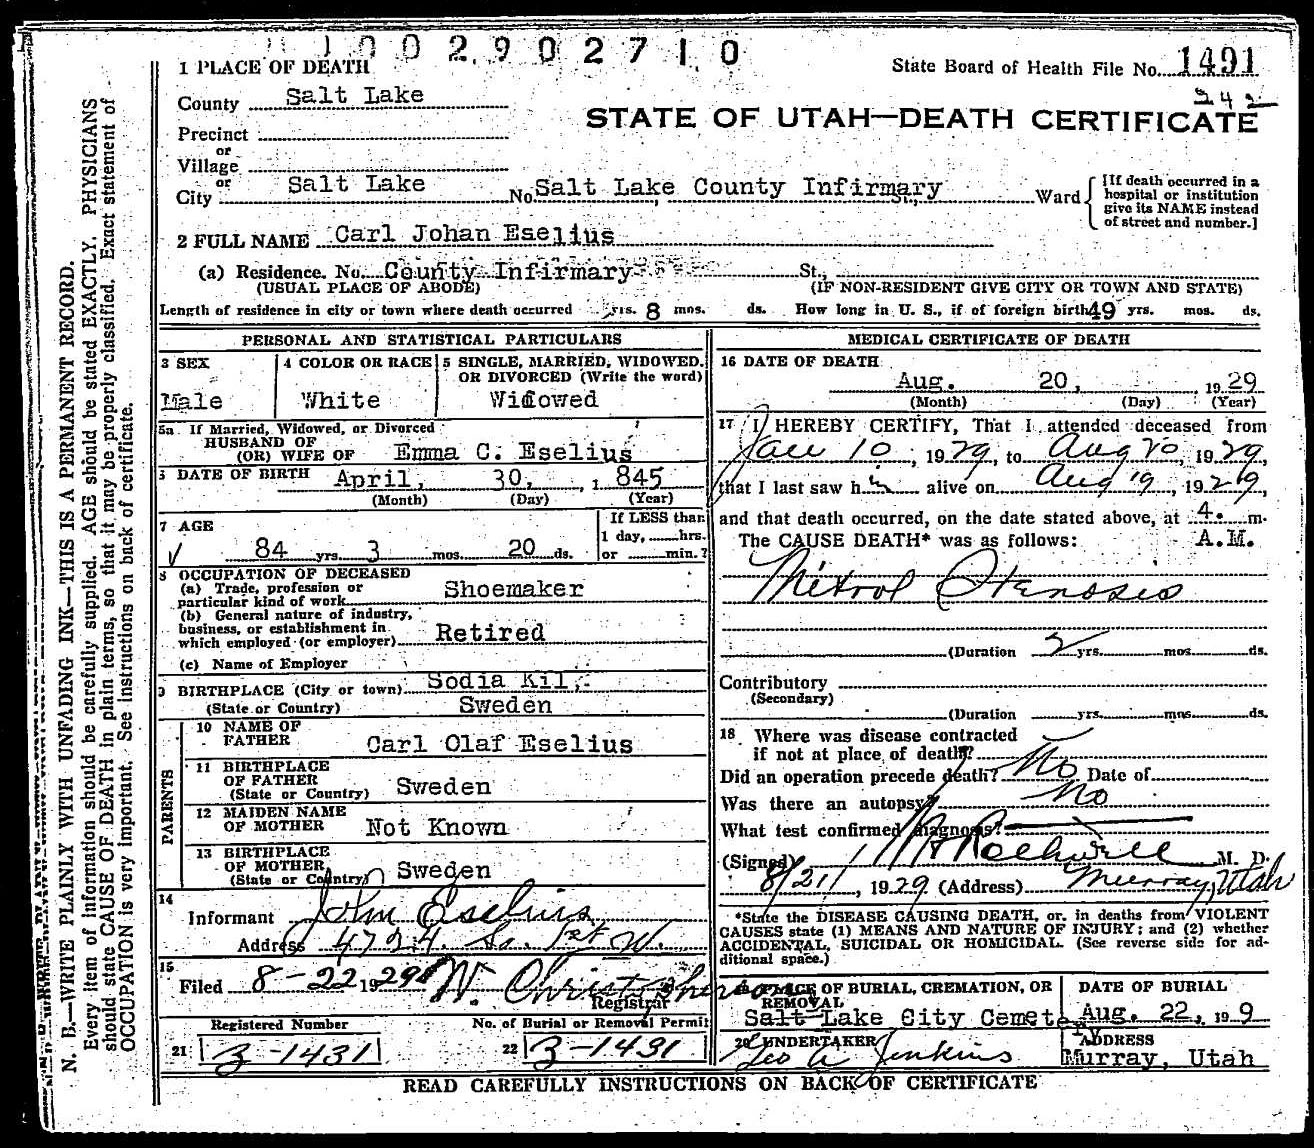 1002902710
1 PLACE OF DEATH
State Board of Health File No. 1491
242
County Salt Lake
STATE OF UTAH—DEATH CERTIFICATE
Precinct
or
Village
or
City Salt Lake No. Salt Lake County Infirmary St., Ward
[If death occurred in a
hospital or institution
give its NAME instead
of street and number.]
2 FULL NAME Carl Johan Eselius
(a) Residence. No. County Infirmary St.,
(USUAL PLACE OF ABODE) (IF NON-RESIDENT GIVE CITY OR TOWN AND STATE)
Length of residence in city or town where death occurred yrs. 8 mos. ds. How long in U. S., if of foreign birth 49 yrs. mos. ds.
PERSONAL AND STATISTICAL PARTICULARS
3 SEX
Male
4 COLOR OR RACE
White
5 SINGLE, MARRIED, WIDOWED.
OR DIVORCED (Write the word)
Widowed
5a If Married, Widowed, or Divorced
HUSBAND OF
(OR) WIFE OF Emma C. Eselius
6 DATE OF BIRTH April, 30, 1845
(Month) (Day) (Year)
7 AGE
84 yrs. 3 mos. 20 ds.
If LESS than
1 day, hrs.
or min.?
8 OCCUPATION OF DECEASED
(a) Trade, profession or
particular kind of work Shoemaker
(b) General nature of industry,
business, or establishment in
which employed (or employer) Retired
(c) Name of Employer
9 BIRTHPLACE (City or town) Sodia Kil,
(State or Country) Sweden
PARENTS
10 NAME OF
FATHER Carl Olaf Eselius
11 BIRTHPLACE
OF FATHER
(State or Country) Sweden
12 MAIDEN NAME
OF MOTHER Not Known
13 BIRTHPLACE
OF MOTHER
(State or Country) Sweden
14
Informant John Eselius
Address 4724 So. 1st W.
15
Filed 8-22 1929 W. Christopherson
Registrar
Registered Number
21 3-1431
No. of Burial or Removal Permit
22 3-1431
MEDICAL CERTIFICATE OF DEATH
16 DATE OF DEATH
Aug. 20, 1929
(Month) (Day) (Year)
17 I HEREBY CERTIFY, That I attended deceased from
Jan 10, 1929, to Aug 20, 1929,
that I last saw him alive on Aug 19, 1929,
and that death occurred, on the date stated above, at 4. m.
The CAUSE DEATH* was as follows: A.M.
Mitrol Stenosis
(Duration 2 yrs. mos. ds.
Contributory
(Secondary)
(Duration yrs. mos. ds.
18 Where was disease contracted
if not at place of death?
Did an operation precede death? No Date of
Was there an autopsy? No
What test confirmed diagnosis?
(Signed) Rothwell M. D.
8/21/, 1929 (Address) Murray, Utah
*State the DISEASE CAUSING DEATH, or, in deaths from VIOLENT
CAUSES state (1) MEANS AND NATURE OF INJURY; and (2) whether
ACCIDENTAL, SUICIDAL OR HOMICIDAL. (See reverse side for ad-
ditional space.)
PLACE OF BURIAL, CREMATION, OR
REMOVAL
Salt Lake City Cemetery
DATE OF BURIAL
Aug. 22, 19 9
20 UNDERTAKER
Geo A Jenkins
ADDRESS
Murray, Utah
READ CAREFULLY INSTRUCTIONS ON BACK OF CERTIFICATE
N. B.—WRITE PLAINLY WITH UNFADING INK—THIS IS A PERMANENT RECORD.
Every item of information should be carefully supplied. AGE should be stated EXACTLY. PHYSICIANS
should state CAUSE OF DEATH in plain terms, so that it may be properly classified. Exact statement of
OCCUPATION is very important. See instructions on back of certificate.